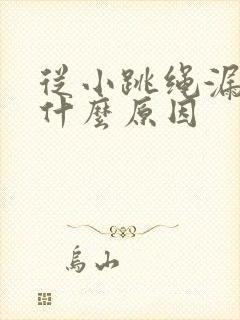 從小跳绳漏
什麼原因
烏山